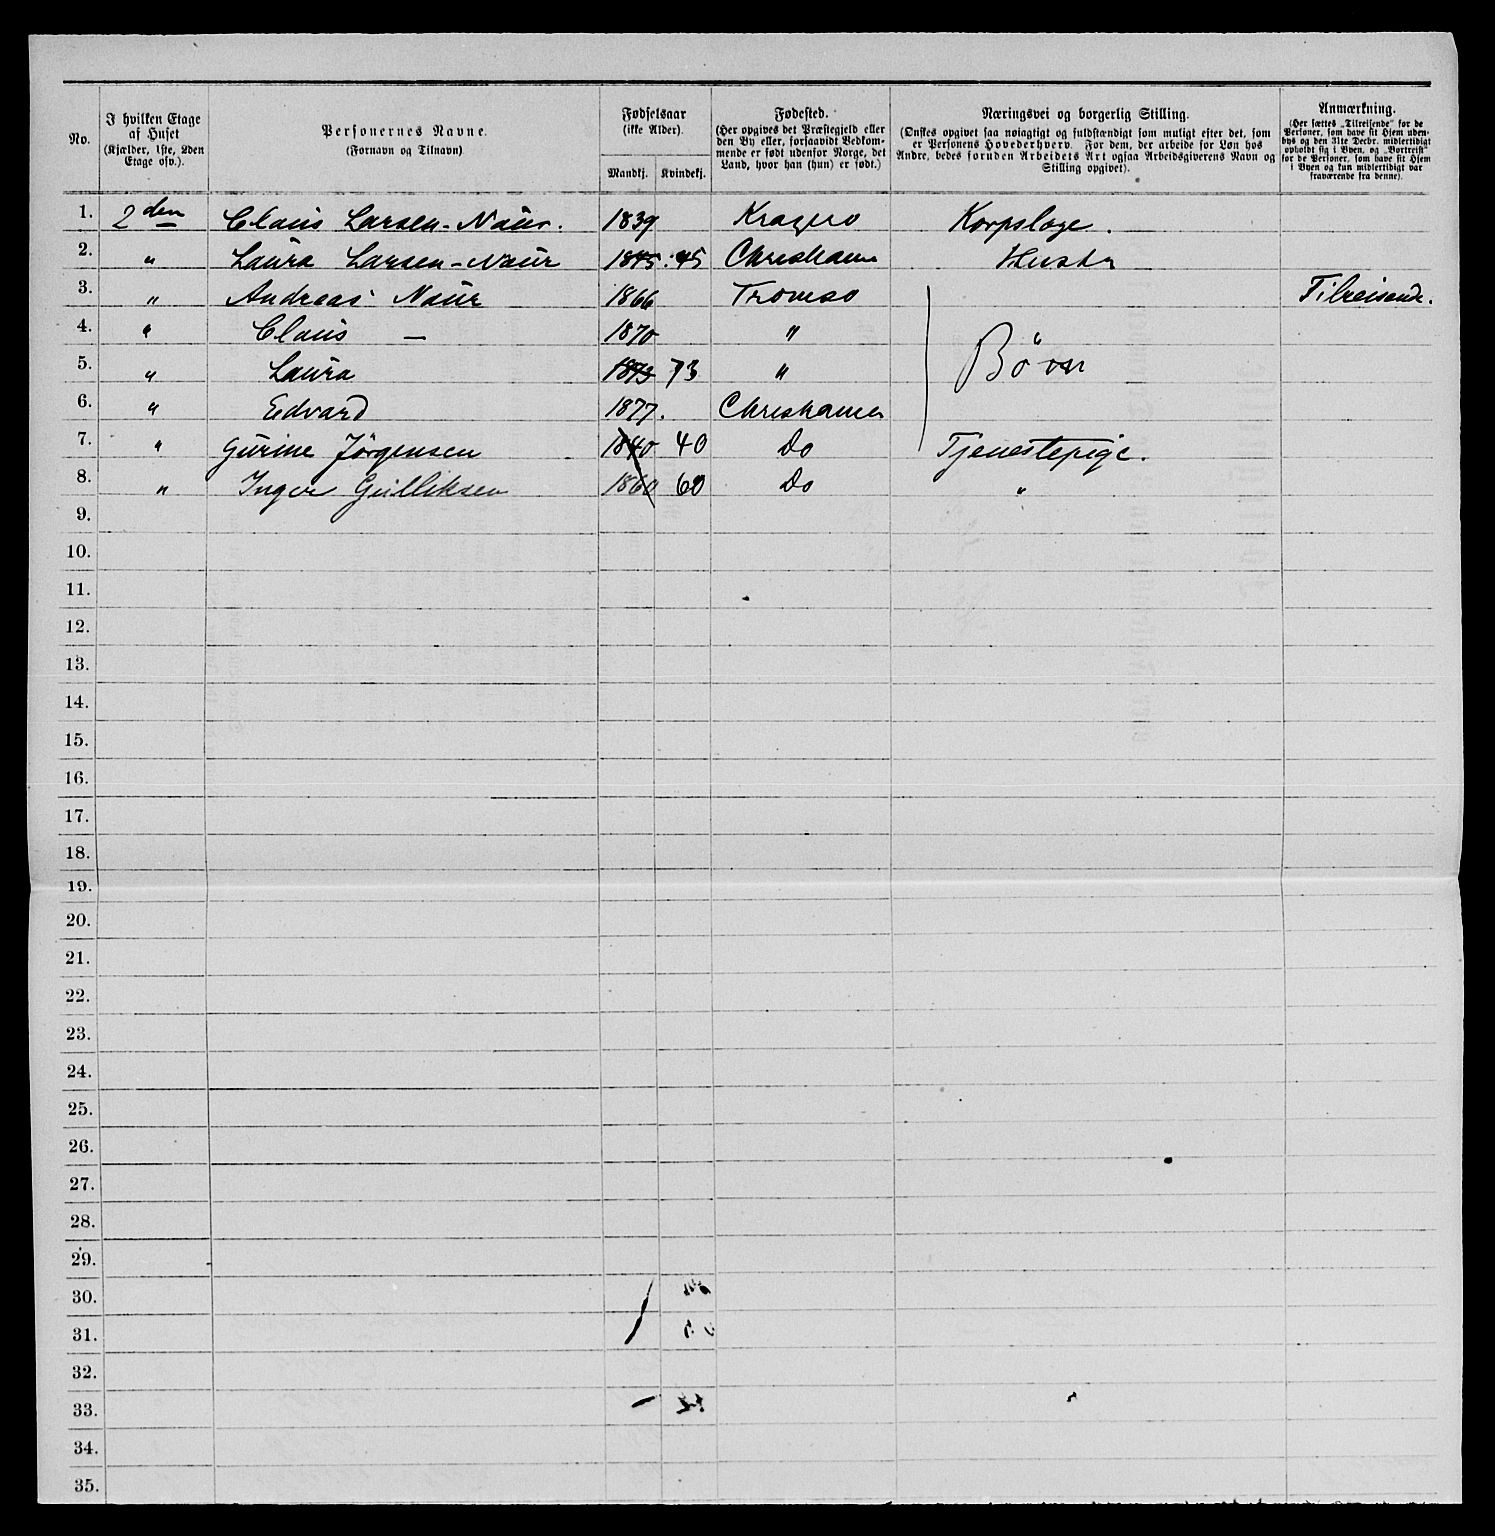 No.
I hvilken Etage af Huset (Kjælder, 1ste, 2den Etage osv.).
Personernes Navne. (Fornavn og Tilnavn)
Fødselsaar (ikke Alder).
Mandkj. Kvindekj.
Fødested. (Her opgives det Præstegjeld eller den By eller, forsaavidt Vedkommende er født udenfor Norge, det Land, hvor han (hun) er født.)
Næringsvei og borgerlig Stilling. (Ønskes opgivet saa nøiagtigt og fuldstændigt som muligt efter det, som er Personens Hovederhverv. For dem, der arbeide for Løn hos Andre, bedes foruden Arbeidets Art ogsaa Arbeidsgiverens Navn og Stilling opgivet).
Anmærkning. (Her sættes „Tilreisende“ for de Personer, som have sit Hjem udenbys og den 31te Decbr. midlertidigt opholdt sig i Byen, og „Bortreist“ for de Personer, som have sit Hjem i Byen og kun midlertidigt var fraværende fra denne).
1. 2den Claus Larsen-Naur. 1839 Kragerø Korpslæge.
2. " Laura Larsen-Naur 1845 : 45 Christiania Hustr
3. " Andreas Naur 1866 Tromsø Tilreisende.
4. " Claus — 1870 " "
5. " Laura 1873 73 " Børn
6. " Edvard 1877. Christiania
7. " Gurine Jörgensen 1840 40 Do Tjenestepige.
8. " Inger Gulliksen 1860 60 Do "
9.
10.
11.
12.
13.
14.
15.
16.
17.
18.
19.
20.
21.
22.
23.
24.
25.
26.
27.
28.
29.
30.
31.
32.
33.
34.
35.